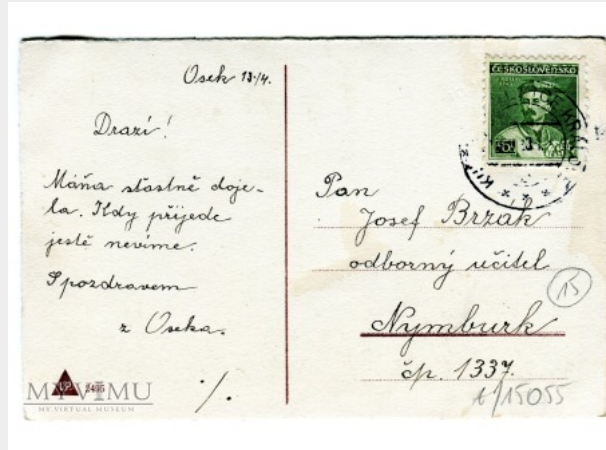 Osek 13/4.
Drazí!
Máňa stastně doje-
la. Kdy přijede
jestě nevíme.
S pozdravem
z Oseka.
./.
ČESKOSLOVENSKO
50
Pan
Josef Brzák
odborný učitel
Nymburk
čp. 1337.
15
2495
MYVIMU
MY VIRTUAL MUSEUM